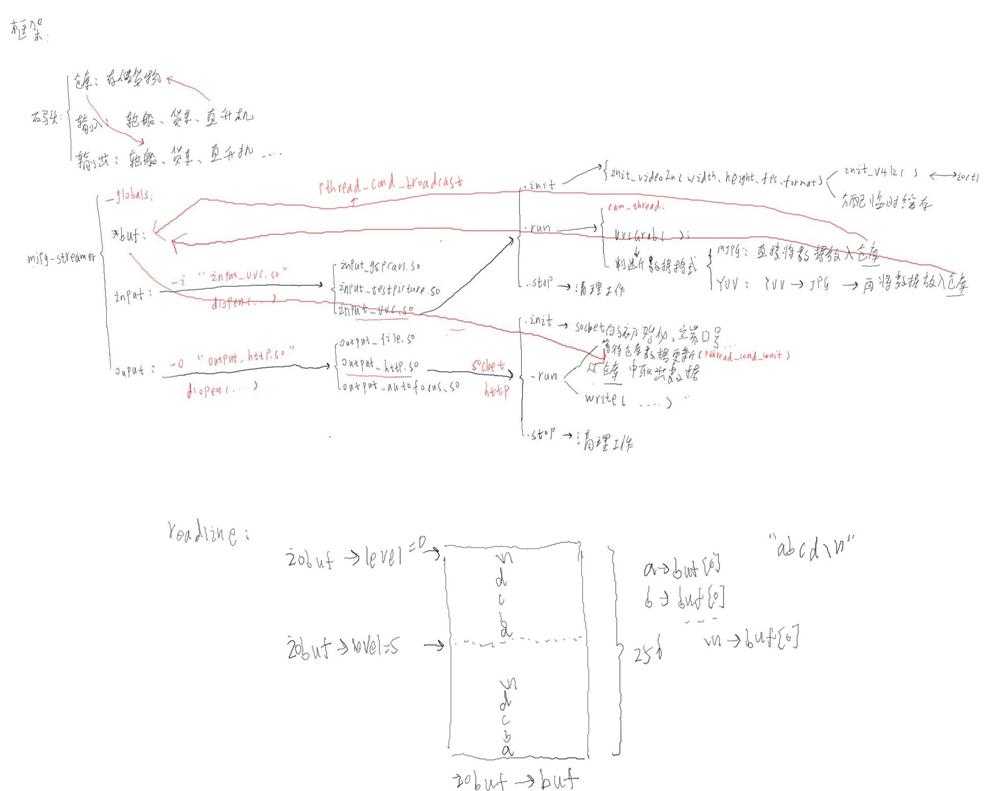 框架
仓库: 存储货物
码头:
输入: 轮船、货车、直升机
输出: 轮船、货车、直升机 ....
mjpg-streamer
-globals:
*buf:
pthread_cond_broadcast
input:
-i "input_uvc.so"
dlopen(...)
input_gspcav1.so
input_testpicture.so
input_uvc.so
output:
-o "output_http.so"
dlopen(...)
output_file.so
output_http.so
output_autofocus.so
socket
http
.init
init_videoIn( width, height, fps, format)
init_v4l2( )
ioctl
分配临时缓存
.run
cam_thread:
uvcGrab( );
判断数据格式
MJPG: 直接将数据放入仓库
YUV: YUV → JPG → 再将数据放入仓库
.stop → 清理工作
.init → socket
等待仓库数据更新(pthread_cond_wait)
.run
从仓库中取出数据
write( ....)
.stop → 清理工作
readline:
iobuf → level=0 →
iobuf → level=5 →
\n
d
c
b
a
\n
d
c
b
a
256
"abcd\n"
a → buf[0]
b → buf[0]
\n → buf[0]
iobuf → buf